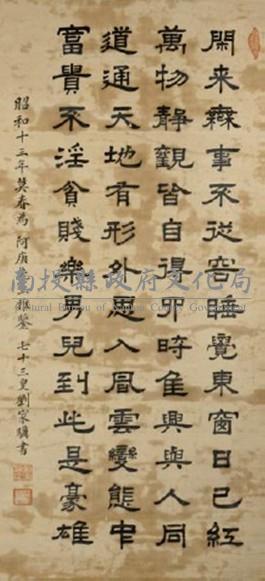 閑来無事不從容睡覺東窗日已紅
萬物靜觀皆自得四時佳興與人同
道通天地有形外思入風雲變態中
富貴不淫貧賤樂男兒到此是豪雄
昭和十三年莫春為 阿庚 雅鑒 七十三叟劉家驥書
南投縣政府文化局
Cultural Bureau of Nantou County Government